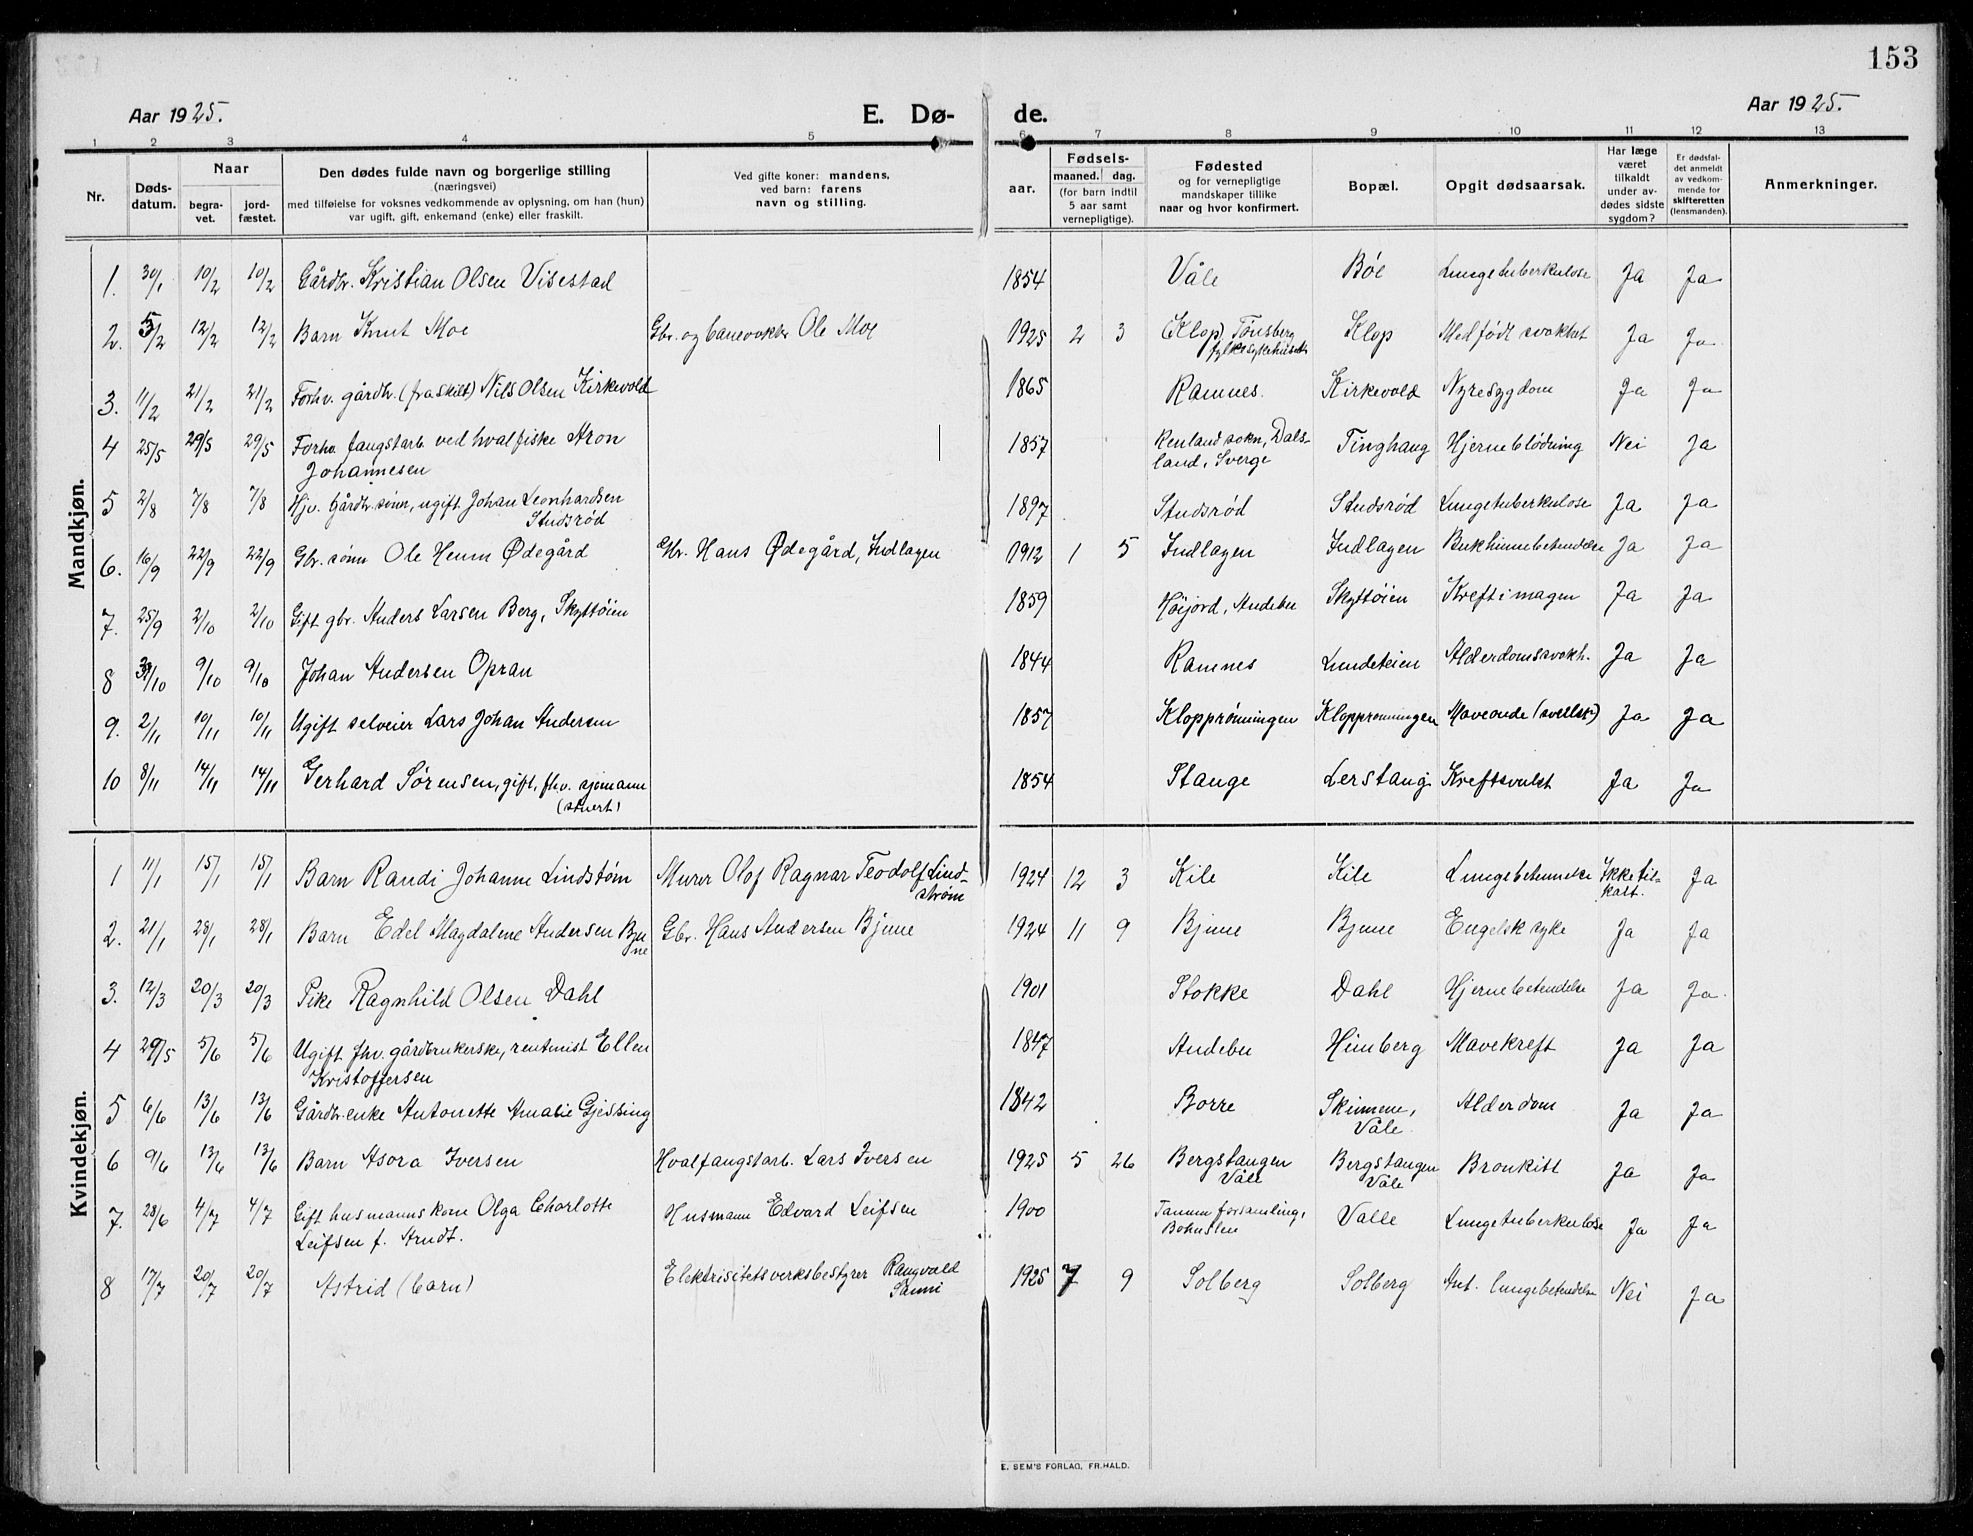 153
Aar 1925. E. Dø- de. Aar 1925.
1 2 3 4 5 6 7 8 9 10 11 12 13
Nr. Døds-datum. Naar begra-vet. jord-fæstet. Den dødes fulde navn og borgerlige stilling (næringsvei) med tilføielse for voksnes vedkommende av oplysning, om han (hun) var ugift, gift, enkemand (enke) eller fraskilt. Ved gifte koner: mandens, ved barn: farens navn og stilling. aar. Fødsels- maaned. dag. (for barn indtil 5 aar samt vernepligtige). Fødested og for vernepligtige mandskaper tillike naar og hvor konfirmert. Bopæl. Opgit dødsaarsak. Har læge været tilkaldt under av-dødes sidste sygdom? Er dødsfal-det anmeldt av vedkom-mende for skifteretten (lensmanden). Anmerkninger.
Mandkjøn.
1. 30/1 10/2 10/2 Gårdbr. Kristian Olsen Visestad 1854 Våle Bøe Lungetuberkulose Ja Ja
2. 5/2 12/2 12/2 Barn Knut Moe Gbr. og banevokter Ole Moe 1925 2 3 (Klop) Tønsberg fylkessykehuset Klop Medfødt svakhet Ja Ja
3. 11/2 21/2 21/2 Forhv. gårdbr. (fraskilt) Nils Olsen Kirkevold 1865 Ramnes. Kirkevold Nyresygdom Ja Ja
4 25/5 29/5 29/5 Forhv. fangstarb. ved hvalfiske Aron 1857 Renland sokn, Dals- Tinghaug Hjerneblødning Nei Ja
Johannesen land, Sverge
5 2/8 7/8 7/8 Hjv. gårdbr. sønn, ugift Johan Leonhardsen 1897 Studsrød Studsrød Lungetuberkulose Ja Ja
Studsrød
6. 16/9 22/9 22/9 Gbr. sønn Ole Henm Ødegård Gbr. Hans Ødegård, Indlagen 1912 1 5 Indlagen Indlagen Bukhinnebetendelse Ja Ja
7. 25/9 2/10 2/10 Gift gbr. Anders Larsen Berg, Skyttøien 1859 Høijord, Andebu Skyttøien Kreft i magen Ja Ja
8 /10 9/10 9/10 Johan Andersen Opran 1844 Ramnes Lundeteien Alderdomssvakh. Ja Ja
9. 2/11 10/11 10/11 Ugift selveier Lars Johan Andersen 1857 Kloprønningen Kloprønningen Maveonde Ja Ja
10 8/11 14/11 14/11 Gerhard Sørensen, gift, fhv. sjømann 1854 Stange Lerstang Kreftsvulst Ja Ja
(stuert)
Kvindekjøn.
1 11/1 15/1 15/1 Barn Randi Johanne Lindstøm Murer Olof Ragnar Teodolf Lind- 1924 12 3 Kile Kile Lungebetennelse Ikke til- Ja
strøm kalt.
2. 21/1 28/1 28/1 Barn Edel Magdalene Andersen Bju Gbr. Hans Andersen Bjune 1924 11 9 Bjune Bjune Engelsk syke Ja Ja
ne
3. 12/3 20/3 20/3 Pike Ragnhild Olsen Dahl 1901 Stokke Dahl Hjernebetendelse Ja Ja
4 29/5 5/6 5/6 Ugift fhv. gårdbrukerske, rentenist Ellen 1847 Andebu Himberg Mavekreft Ja Ja
Kristoffersen
5 6/6 13/6 13/6 Gårdbr. enke Antonette Amalie Gjessing 1842 Borre Skinmene, Alderdom Ja Ja
Våle
6 9/6 13/6 13/6 Barn Asora Iversen Hvalfangstarb. Lars Iversen 1925 5 26 Bergstangen Bergstangen Bronkitt Ja Ja
Våle Våle
7. 28/6 4/7 4/7 Gift husmannskone Olga Charlotte Husmann Edvard Leifsen 1900 Tanum forsamling, Valle Lungetuberkulose Ja Ja
Leifsen f. Arndt. Bohuslen
8 17/7 20/7 20/7 Astrid (barn) Elektrisitetsverksbestyrer Rangvald 1925 7 9 Solberg Solberg Ant. lungebetendelse Nei Ja
Sanni
E. SEM'S FORLAG, FR.HALD.